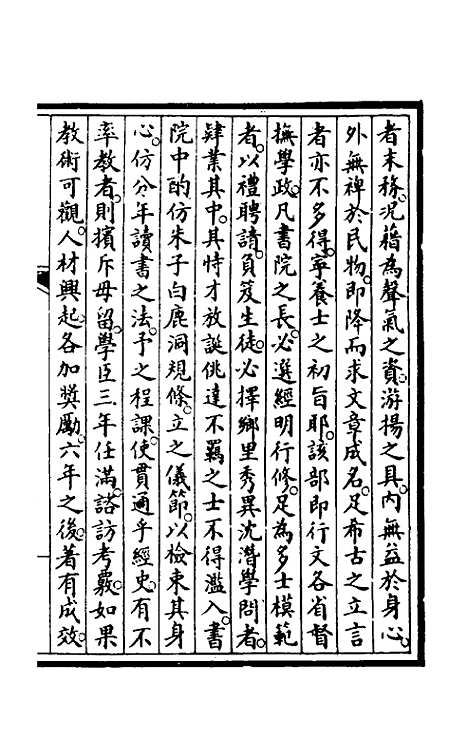 者末務。况藉為聲氣之資。游揚之具。內無益於身心。
外無裨於民物。即降而求文章成名。足希古之立言
者亦不多得。寧養士之初旨耶。該部即行文各省督
撫學政。凡書院之長。必選經明行修。足為多士模範
者。以禮聘請。負笈生徒。必擇鄉里秀異沈潛學問者。
肄業其中。其恃才放誕佻達不羈之士不得濫入。書
院中酌仿朱子白鹿洞規條。立之儀節。以檢束其身
心。仿分年讀書之法。予之程課。使貫通乎經史。有不
率教者。則擯斥毋留。學臣三年任滿。諮訪考覈。如果
教術可觀。人材興起。各加奬勵。六年之後。著有成效。